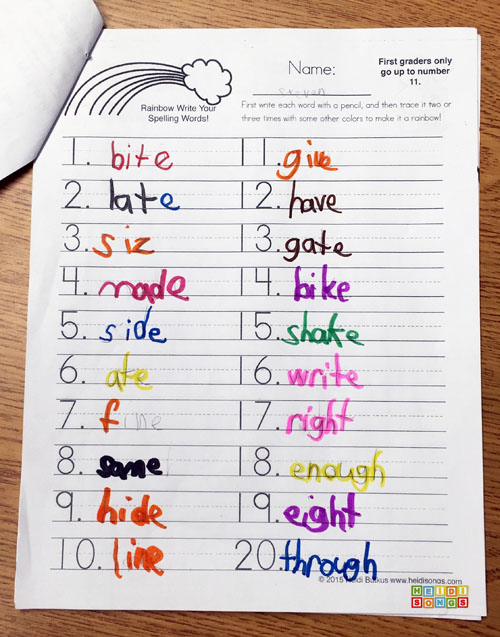 Rainbow Write Your
Spelling Words!
Name:
Steven
First graders only
go up to number
11.
First write each word with a pencil, and then trace it two or
three times with some other colors to make it a rainbow!
1. bite
2. late
3. siz
4. made
5. side
6. ate
7. fine
8. same
9. hide
10. line
11. give
12. have
13. gate
14. bike
15. shake
16. write
17. right
18. enough
19. eight
20. through
© 2015 Heidi Butkus www.heidisongs.com
HEIDI
SONGS